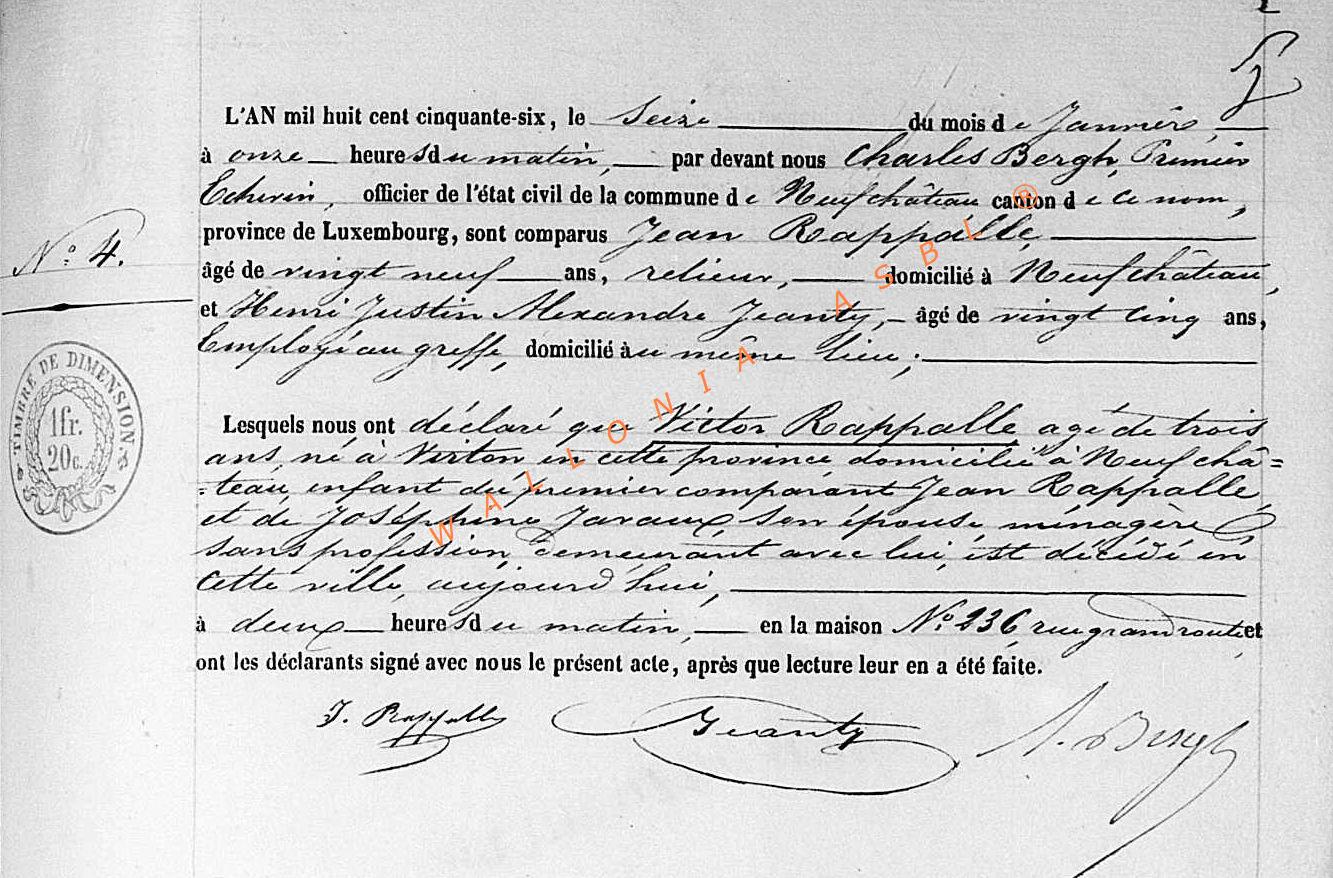 L'AN mil huit cent cinquante-six, le Seize du mois de Janvier,
à onze heures du matin, par devant nous Charles Bergh, Premier
Echevin, officier de l'état civil de la commune de Neufchâteau canton de ce nom,
province de Luxembourg, sont comparus Jean Rappalle,
N.o 4.
âgé de vingt neuf ans, relieur, domicilié à Neufchâteau,
et Henri Justin Alexandre Jeanty, âgé de vingt cinq ans,
Employé au greffe, domicilié au même lieu;
Lesquels nous ont déclaré que Victor Rappalle agé de trois
ans, né à Virton en cette province, domicilié à Neufchâ=
=teau, enfant du premier comparant Jean Rappalle,
et de Joséphine Javaux son épouse ménagère
sans profession, demeurant avec lui, est décédé en
cette ville, aujourd'hui,
à deux heures du matin, en la maison N.o 236 rue grand route et
ont les déclarants signé avec nous le présent acte, après que lecture leur en a été faite.
J. Rappalle Jeanty Bergh
TIMBRE DE DIMENSION
1fr.
20c.
WALLONIA ASBL ®